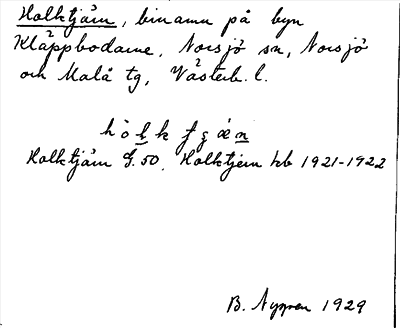 Holktjärn, binamn på byn
Kläppbodarne, Norsjö sn, Norsjö
och Malå tg, Västerb. l.
Holktjärn G. 50. Holktjern hb 1921-1922
B. Nygren 1929